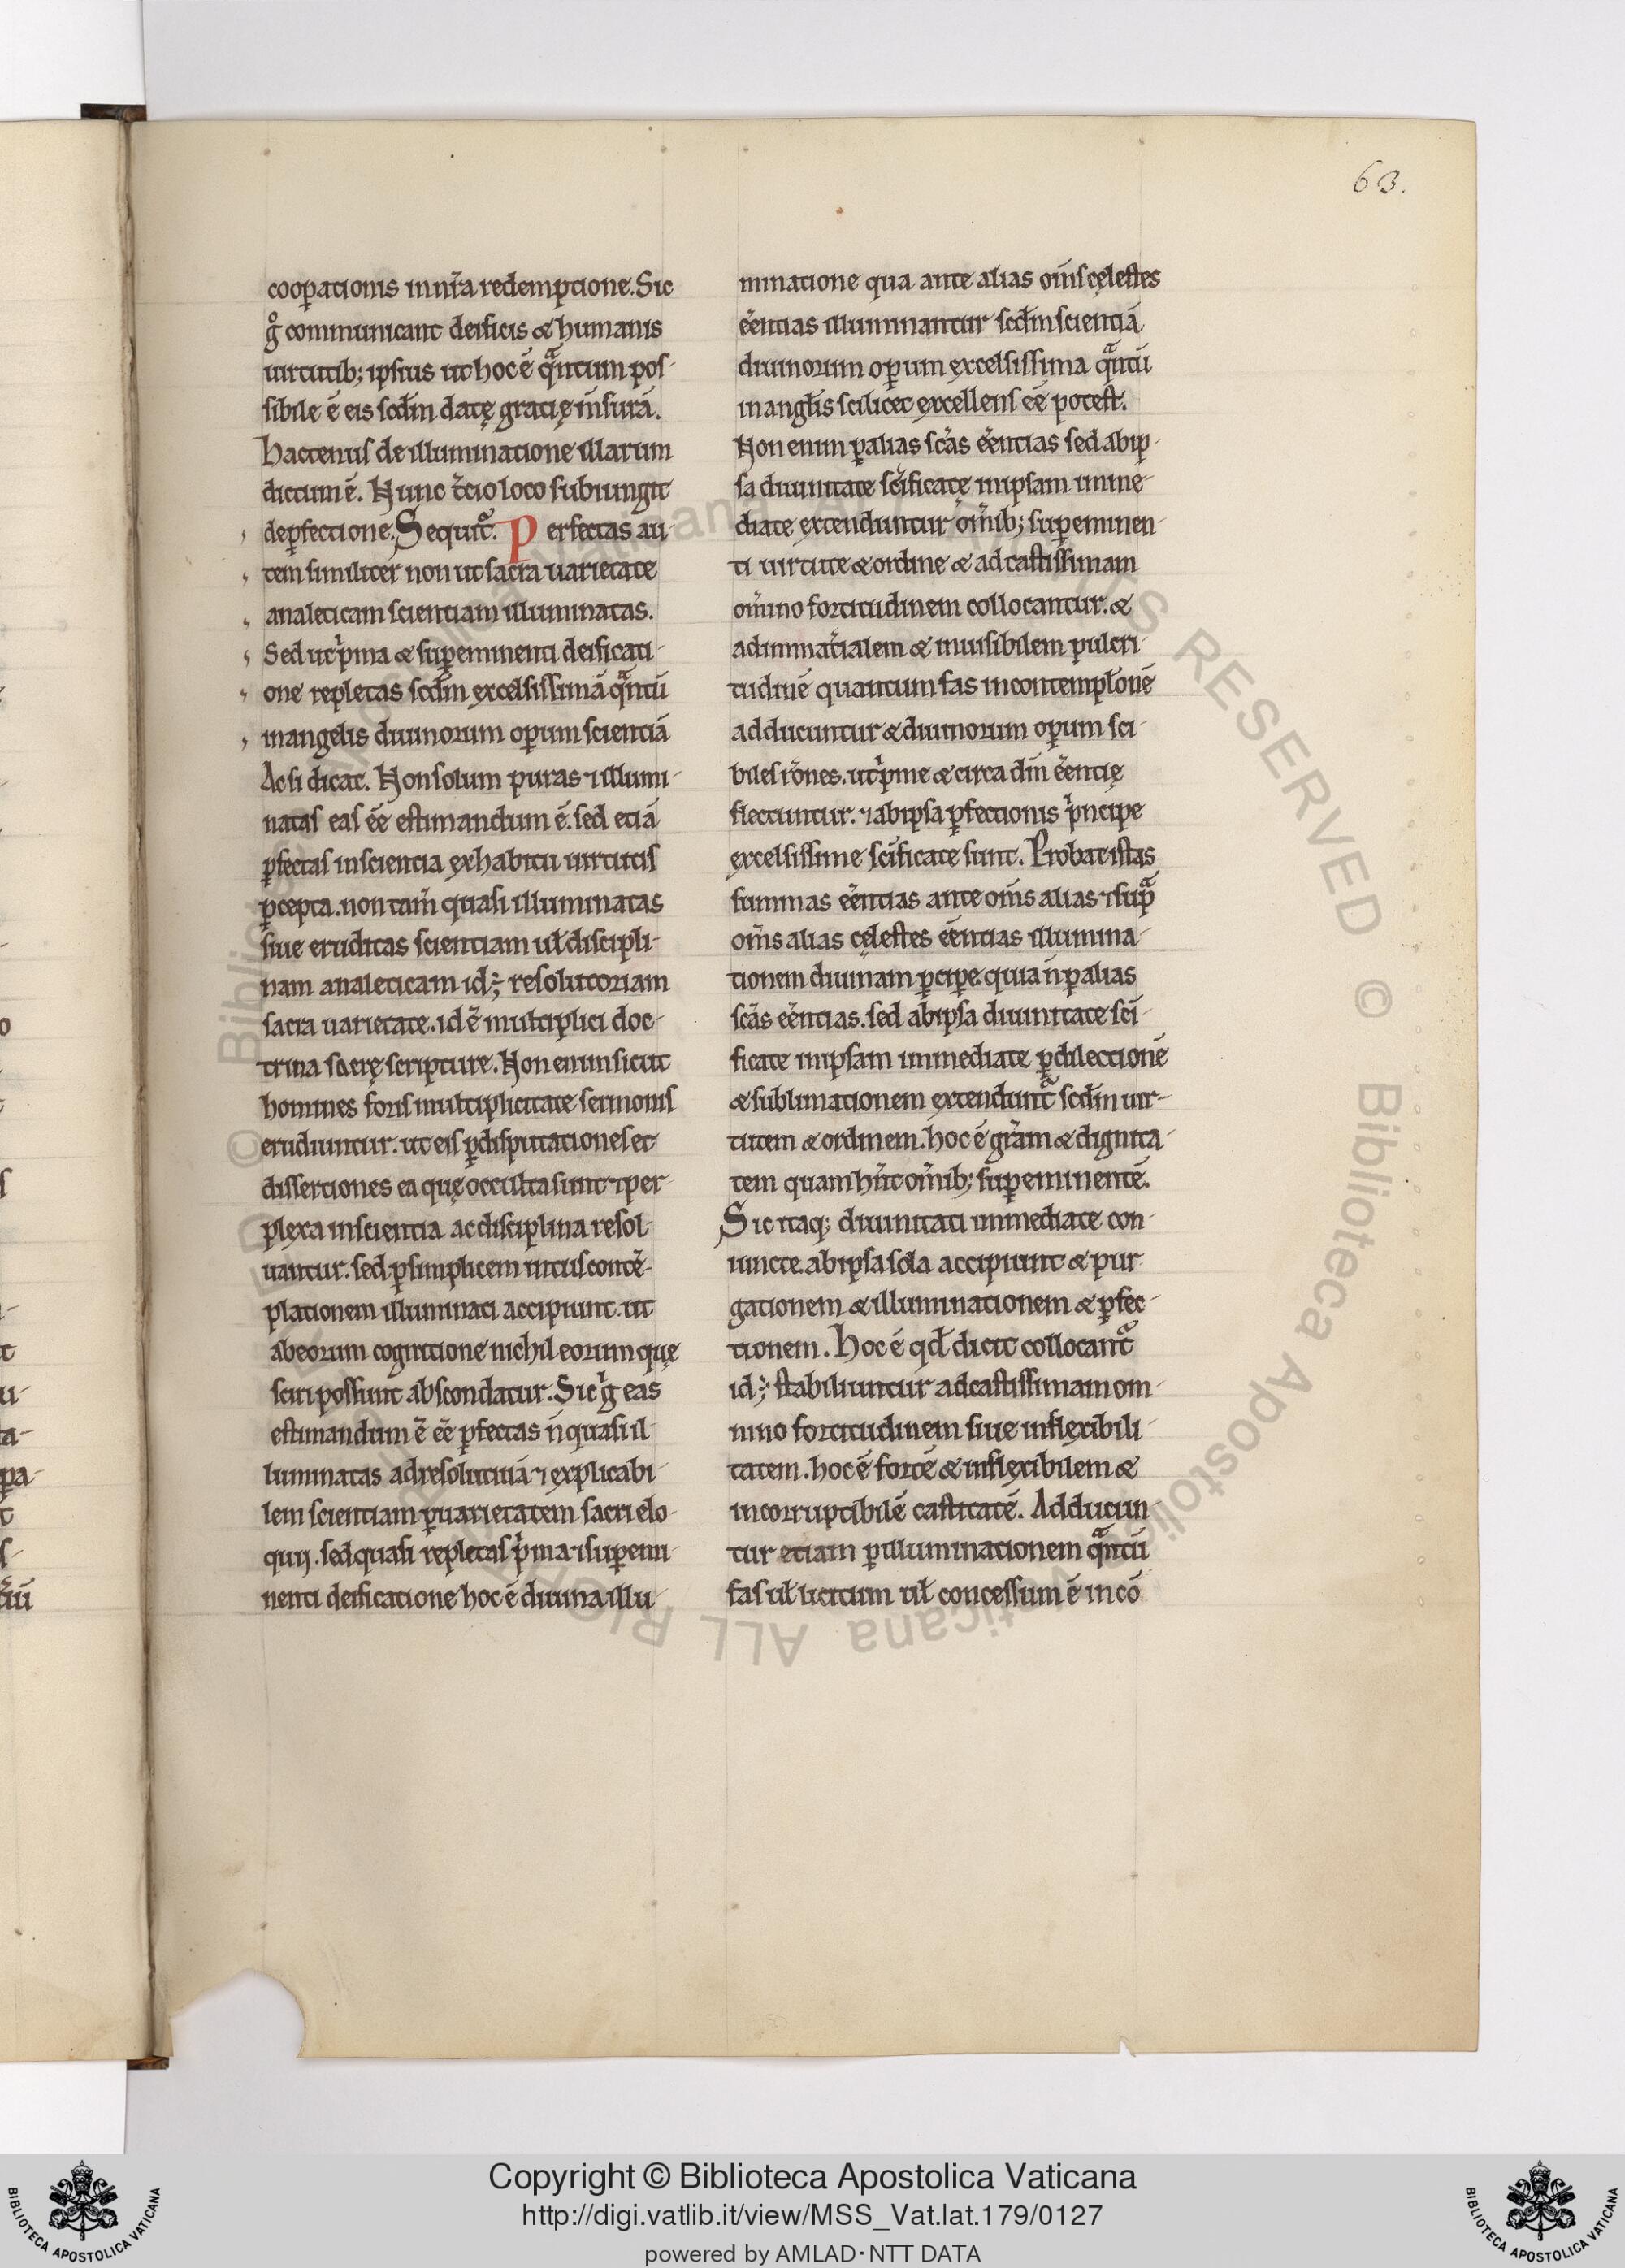 63.
cooꝑationis in nr̃a redemptione. Sic
gͦ communicant deificis & humanis
uirtutib; ipsius ut hoc ẽ qͣntum pos-
sibile ẽ eis scd̃m datę gracię m̃surã.
Hactenus de illuminatione illarum
dictum ẽ. Nunc t̃cio loco subiungit
de ꝑfectione. Sequit᷑. Perfectas au-
tem similiter non ut sacra uarietate
analeticam scientiam illuminatas.
Sed ut p̾ma & suꝑeminenti deificati-
one repletas scd̃m excelsissimã qͣntũ
in angelis diuinorum oꝑum scientiã
Ac si dicat. Non solum puras ⁊ illumi-
natas eas ẽe estimandum ẽ. sed etiã
ꝑfectas in scientia ex habitu uirtutis
ꝑcepta. non tam̃ quasi illuminatas
siue eruditas scientiam ul̃ discipli-
nam analeticam id;̃ resolutoriam
sacra uarietate. id ẽ multiplici doc-
trina sacrę scripture. Non enim sicut
homines foris multiplicitate sermonis
erudiuntur. ut eis ꝑ disputationes et
dissertiones ea quę occulta sunt ⁊ per-
plexa in scientia ac disciplina resol-
uantur. sed ꝑ simplicem intus contẽ-
plationem illuminati accipiunt. ut
ab eorum cognitione nichil eorum quę
sciri possunt abscondatur. Sic gͥ eas
estimandum ẽ ẽe ꝑfectas ñ quasi il-
luminatas ad resolutiuã ⁊ explicabi-
lem scientiam ꝑ uarietatem sacri elo-
quij. sed quasi repletas p̾ma ⁊ suꝑemi-
nenti deificatione hoc ẽ diuina illu-
minatione qua ante alias om̃s cęlestes
ẽentias illuminantur scd̃m scientiã
diuinorum oꝑum excelsissima qͣntũ
in angl̃is scilicet excellens ẽe potest.
Non enim ꝑ alias sc̃as ẽentias sed ab ip-
sa diuinitate sc̃ificatę in ipsam inme-
diate extenduntur om̃ib; suꝑeminen-
ti uirtute & ordine & ad castissimam
om̃ino fortitudinem collocantur. &
ad inmat̃ialem & inuisibilem pulcri-
tudinẽ quantum fas in contempl̃onẽ
adducuntur & diuinorum oꝑum sci-
biles rõnes. ut p̾me & circa dm̃ ẽentię
flectuntur. ⁊ ab ipsa ꝑfectionis p̾ncipe
excelsissime sc̃ificate sunt. Probat istas
summas ẽentias ante om̃s alias ⁊ supͣ
om̃s alias cęlestes ẽentias illumina-
tionem diuinam ꝑcipe. quia ñ ꝑ alias
sc̃as ẽentias. sed ab ipsa diuinitate sc̃i-
ficate in ipsam immediate ꝑ dilectionẽ
& sublimationem extendunt᷑ scd̃m uir-
tutem & ordinem. hoc ẽ gr̃am & dignita-
tem quam hñt om̃ib; suꝑeminentẽ.
Sic itaq; diuinitati immediate con-
iuncte. ab ipsa sola accipiunt & pur-
gationem & illuminationem & ꝑfec-
tionem. Hoc ẽ qd̃ dicit collocant᷑
id;̃ stabiliuntur ad castissimam om-
nino fortitudinem siue inflexibili-
tatem. hoc ẽ fortẽ & inflexibilem &
incorruptibilẽ castitatẽ. Adducun-
tur etiam ꝑ illuminationem qͣntũ
fas ul̃ licitum ul̃ concessum ẽ in cõ
Copyright © Biblioteca Apostolica Vaticana
http://digi.vatlib.it/view/MSS_Vat.lat.179/0127
powered by AMLAD·NTT DATA